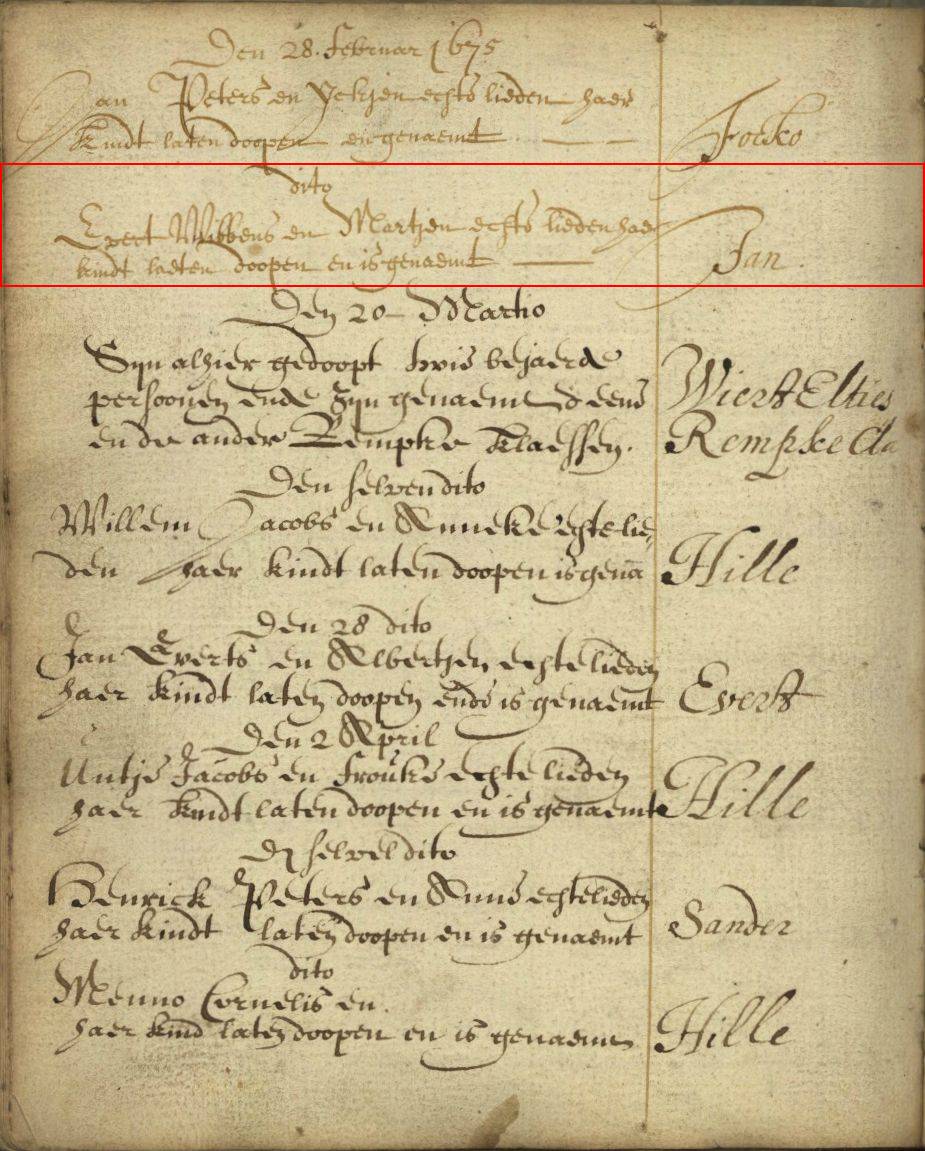 Den 28. Februar 1675
Jan Peters en Yckjen echte lieden haer
kindt laten doopen en genaemt — — Focko
dito
Evert Wibbens en Martjen echte lieden haer
kindt laeten doopen en is genaemt — Jan
Den 20 Martio
Syn alhier gedoopt twie bejaerde
persoonen ende Syn genaemt d eene Wiert Elties
en de ander Rempke Klaessen. Rempke Cla
Den selven dito
Willem Jacobs en Anneke echte lie-
den haer kindt laten doopen is genā Hille
Den 28 dito
Jan Everts en Albertjen echte lieden
haer kindt laten doopen ende is genaemt Evert
Den 2 April
Untje Jacobs en Frouke echte lieden
haer kindt laten doopen en is genaemt Hille
Dn selvel dito
Henrick Peters en Anne echtelieden
haer kindt laten doopen en is genaemt Sander
dito
Menno Cornelis en
haer kind laten doopen en is genaemt Hille